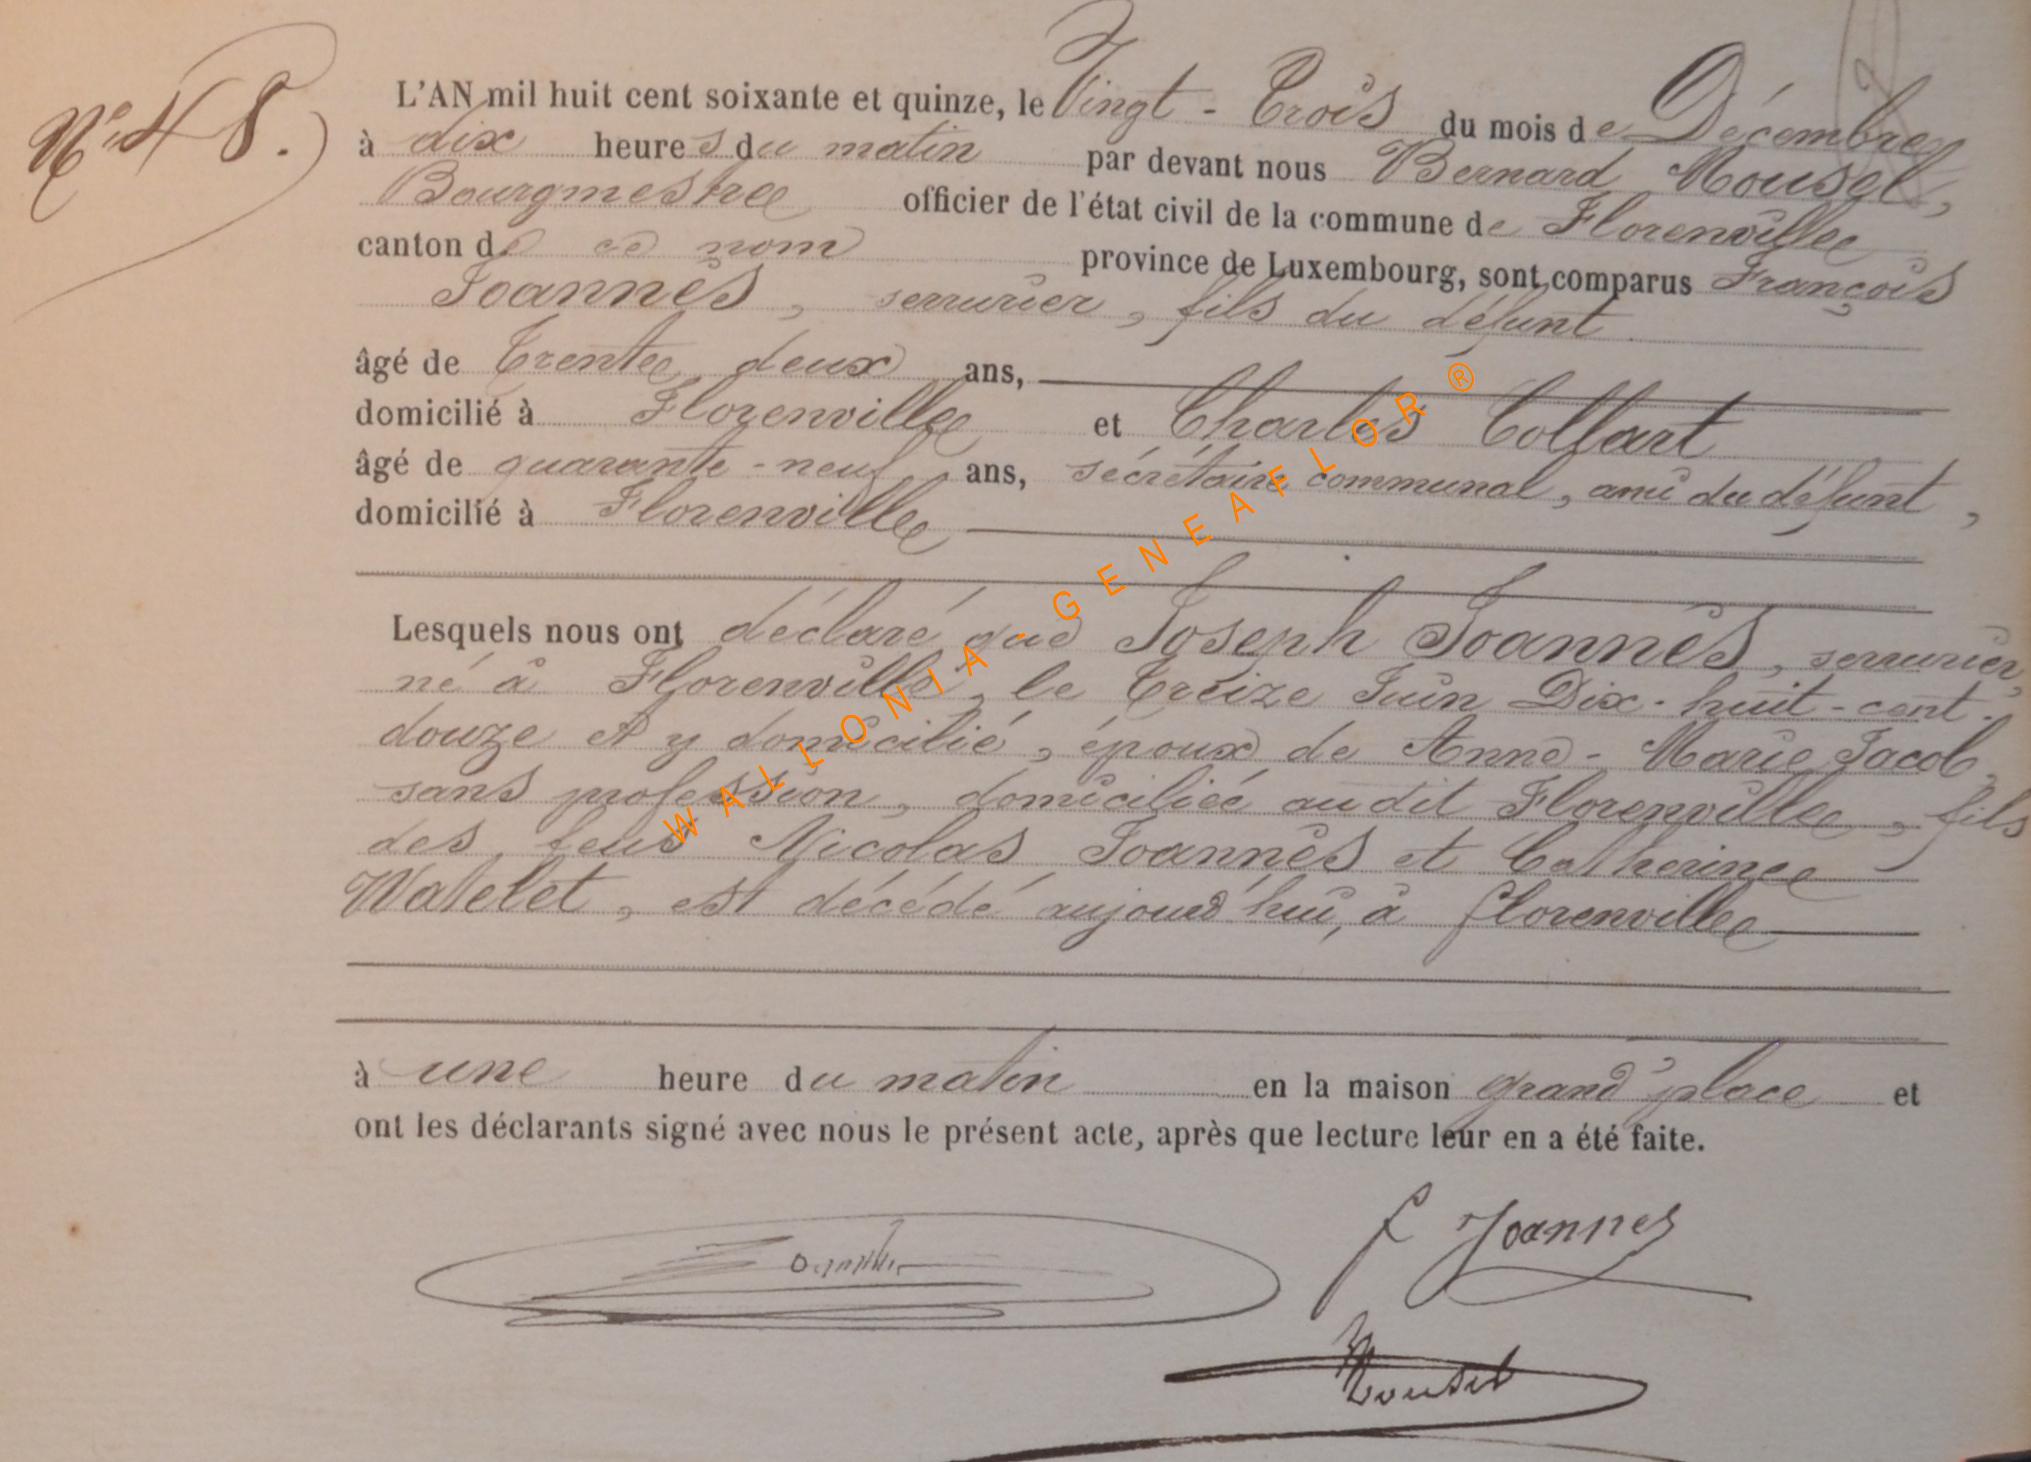 N° 48.
L'AN mil huit cent soixante et quinze, le Vingt-Trois du mois de Décembre,
à dix heures du matin par devant nous Bernard Mousel,
Bourgmestre officier de l'état civil de la commune de Florenville
canton de ce nom province de Luxembourg, sont comparus François
Joannès, serrurier, fils du défunt
âgé de Trente deux ans,
domicilié à Florenville et Charles Collart
âgé de quarante-neuf ans, secrétaire communal, ami du défunt,
domicilié à Florenville
Lesquels nous ont déclaré que Joseph Joannès, serrurier,
né à Florenville, le Treize Juin Dix-huit-cent-
douze et y domicilié, époux de Anne-Marie Jacob,
sans profession, domiciliée audit Florenville, fils
des feus Nicolas Joannès et Catherine
Watelet, est décédé aujourd'hui, à florenville
à une heure du matin en la maison grand'place et
ont les déclarants signé avec nous le présent acte, après que lecture leur en a été faite.
f Joannes
Mousel
WALLONIA - GENEAFLOR ®